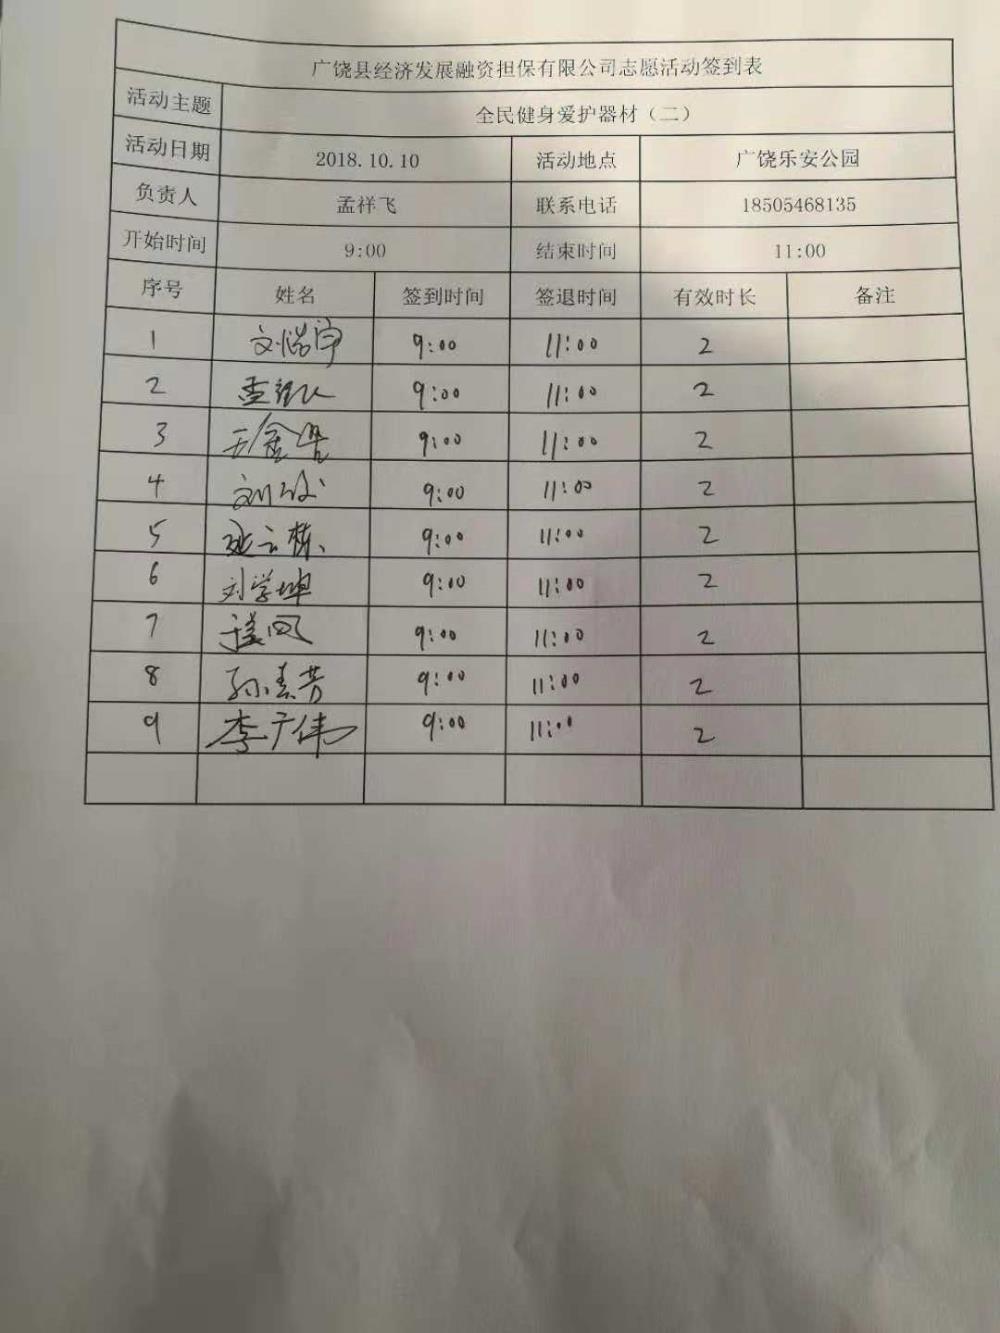 广饶县经济发展融资担保有限公司志愿活动签到表
活动主题 全民健身爱护器材（二）
活动日期 2018.10.10 活动地点 广饶乐安公园
负责人 孟祥飞 联系电话 18505468135
开始时间 9:00 结束时间 11:00
序号 姓名 签到时间 签退时间 有效时长 备注
1 9:00 11:00 2
2 9:00 11:00 2
3 9:00 11:00 2
4 9:00 11:00 2
5 9:00 11:00 2
6 刘学坤 9:00 11:00 2
7 9:00 11:00 2
8 孙素芳 9:00 11:00 2
9 李广伟 9:00 11:00 2